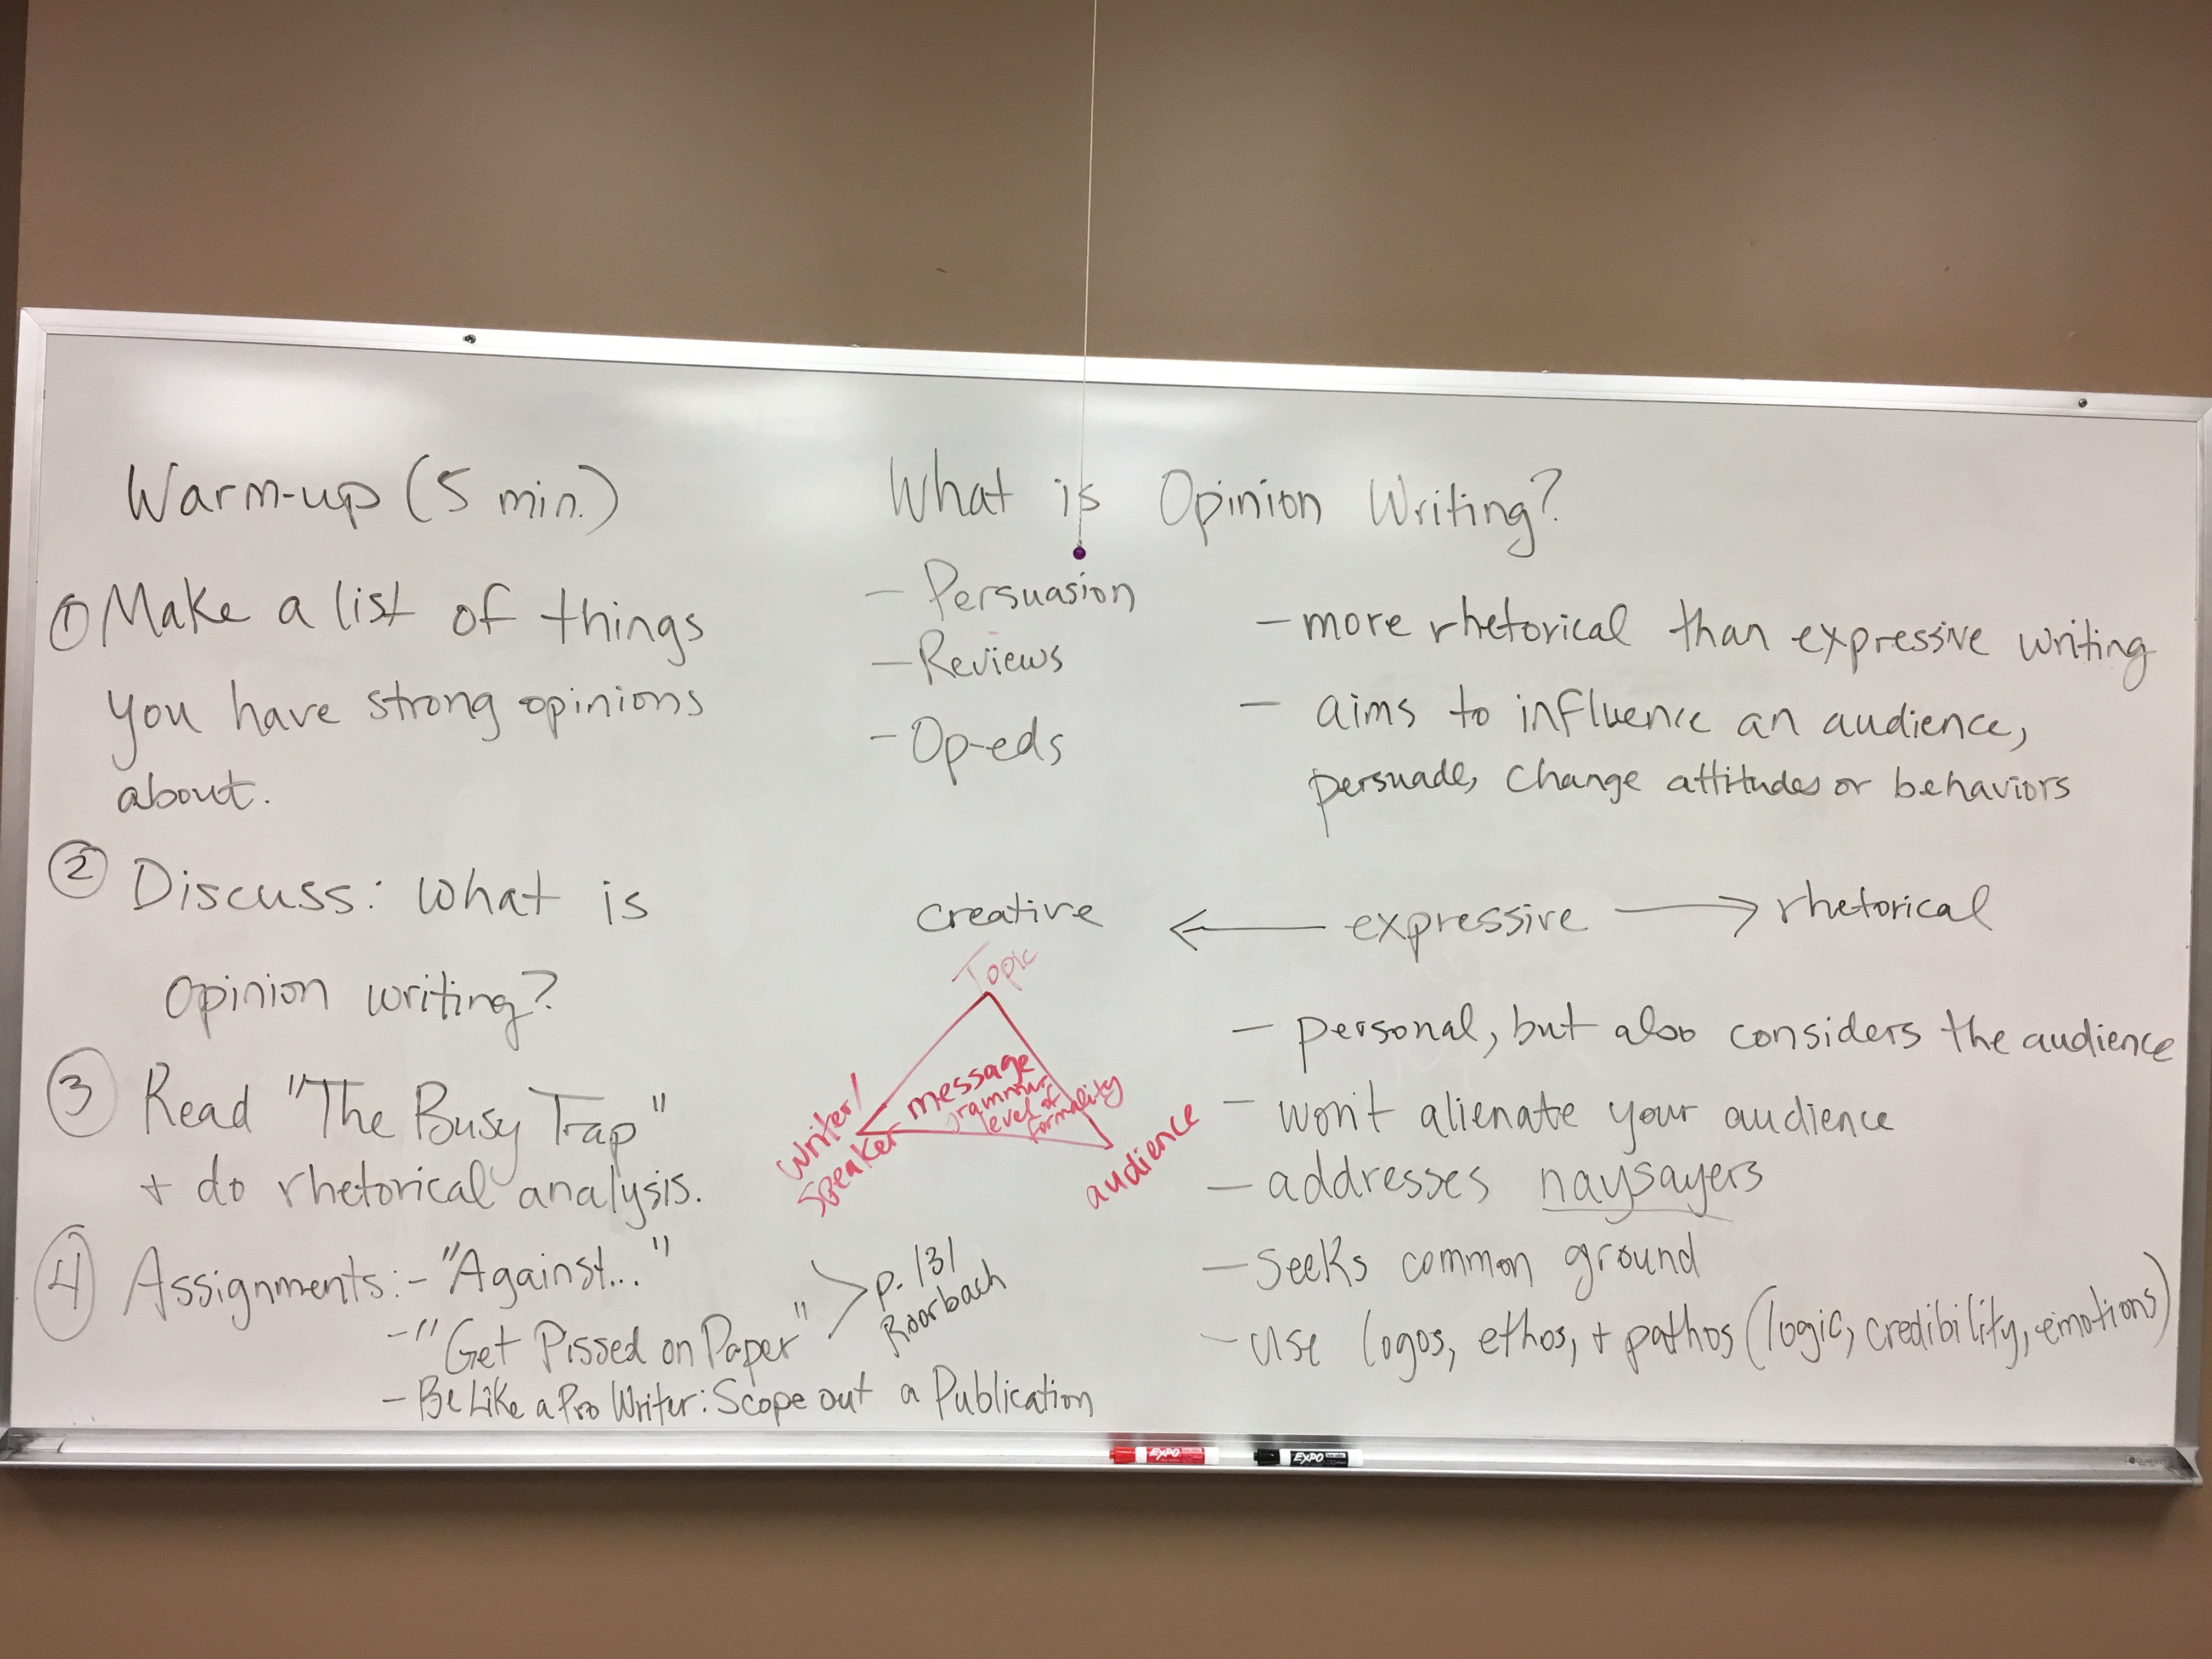 Warm-up (5 min.)
① Make a list of things
you have strong opinions
about.
② Discuss: What is
Opinion writing?
③ Read "The Busy Trap"
+ do rhetorical analysis.
④ Assignments: - "Against..."
- "Get Pissed on Paper"
p. 131
Roorbach
- Be Like a Pro Writer: Scope out a Publication
What is Opinion Writing?
- Persuasion
- Reviews
- Op-eds
- more rhetorical than expressive writing
- aims to influence an audience,
persuade, change attitudes or behaviors
creative ← expressive → rhetorical
Topic
message
grammar
level of
formality
Writer/
Speaker
audience
- personal, but also considers the audience
- won't alienate your audience
- addresses naysayers
- seeks common ground
- use logos, ethos, + pathos (logic, credibility, emotions)
EXPO
EXPO